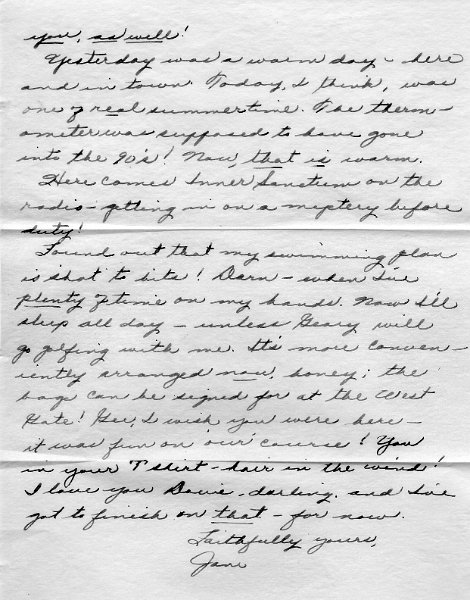 you, as well!
Yesterday was a warm day - here
and in town. Today, I think, was
one of real summertime. The therm-
ometer was supposed to have gone
into the 90's! Now, that is warm.
Here comes Inner Sanctum on the
radio - getting in on a mystery before
duty!
Found out that my swimming plan
is shot to bits! Darn - when I've
plenty of time on my hands. Now I'll
sleep all day - unless Geary will
go golfing with me. It's more conven-
iently arranged now, honey; the
bags can be signed for at the West
Gate! Gee, I wish you were here -
it was fun on our course! You
in your T shirt - hair in the wind!
I love you Davie - darling, and I've
got to finish on that - for now.
Faithfully yours,
Jane